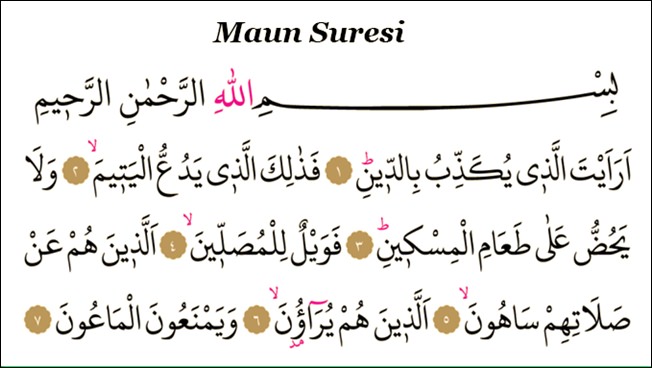 Maun Suresi
بِسْمِ اللّٰهِ الرَّحْمٰنِ الرَّحٖيمِ
اَرَاَيْتَ الَّذٖى يُكَذِّبُ بِالدّٖينِؕ ﴿١﴾ فَذٰلِكَ الَّذٖى يَدُعُّ الْيَتٖيمَۙ ﴿٢﴾ وَلَا
يَحُضُّ عَلٰى طَعَامِ الْمِسْكٖينِؕ ﴿٣﴾ فَوَيْلٌ لِلْمُصَلّٖينَۙ ﴿٤﴾ اَلَّذٖينَ هُمْ عَنْ
صَلَاتِهِمْ سَاهُونَۙ ﴿٥﴾ اَلَّذٖينَ هُمْ يُرَٓاؤُ۫نَۙ ﴿٦﴾ وَيَمْنَعُونَ الْمَاعُونَ ﴿٧﴾